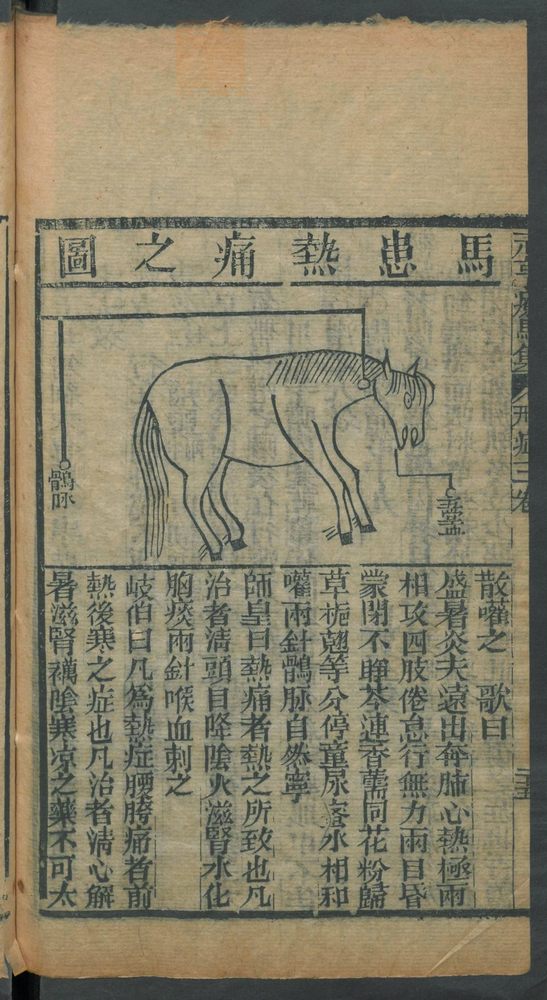 馬患熱痛之圖
鶻脉
散嚾之　歌曰
盛暑炎天遠出奔肺心熱極兩
相攻四肢倦怠行無力兩目昏
蒙閉不睜芩連香薷同花粉歸
草梔翹等分停童尿漿水相和
嚾兩針鶻脉自然寧
師皇曰熱痛者熱之所致也凡
治者清頭目降陰火滋腎水化
胸痰兩針喉血刺之
岐伯曰凡為熱症腰胯痛者前
熱後寒之症也凡治者清心解
暑滋腎禳陰寒凉之藥不可太